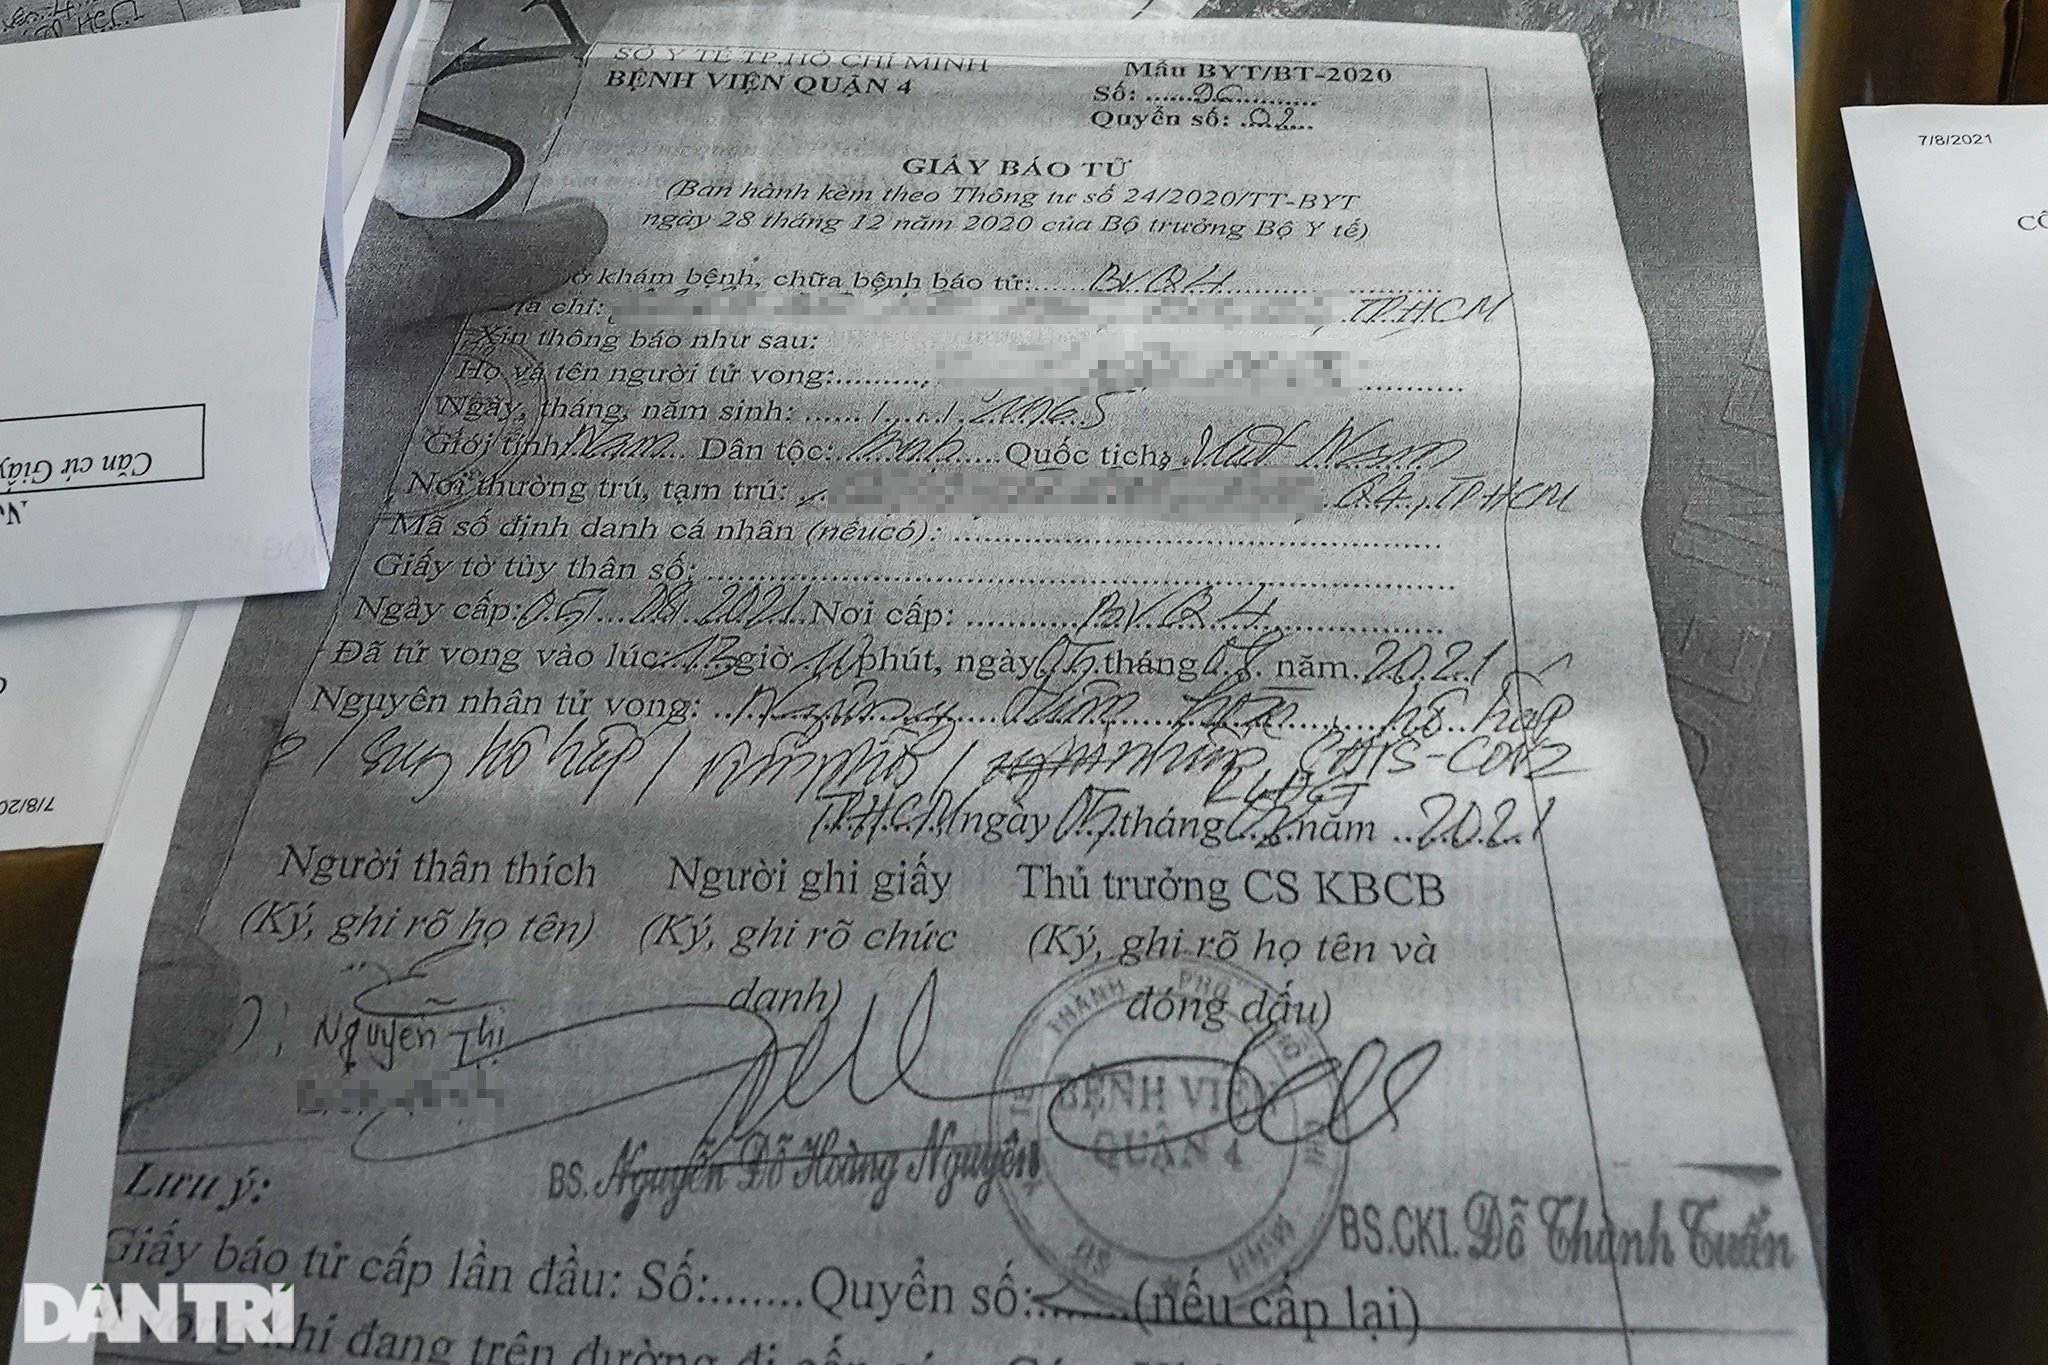 SỞ Y TẾ TP.HỒ CHÍ MINH
BỆNH VIỆN QUẬN 4
Mẫu BYT/BT-2020
Số: ....................
Quyển số: ..........
GIẤY BÁO TỬ
(Ban hành kèm theo Thông tư số 24/2020/TT-BYT
ngày 28 tháng 12 năm 2020 của Bộ trưởng Bộ Y tế)
khám bệnh, chữa bệnh báo tử: BVQ4
chỉ: TPHCM
Xin thông báo như sau:
Họ và tên người tử vong:
Ngày, tháng, năm sinh: ...... /...../
Giới tính Nam Dân tộc: Kinh Quốc tịch: Việt Nam
Nơi thường trú, tạm trú: Q4, TPHCM
Mã số định danh cá nhân (nếucó):
Giấy tờ tùy thân số:
Ngày cấp: 05 08 2021 Nơi cấp: BVQ4
Đã tử vong vào lúc: 13 giờ 10 phút, ngày 05 tháng 08 năm 2021
Nguyên nhân tử vong: Ngưng tim, hô hấp
/ suy hô hấp / viêm phổi / nhiễm SARS-CoV2
TPHCM ngày 05 tháng 08 năm 2021
Người thân thích
Người ghi giấy
Thủ trưởng CS KBCB
(Ký, ghi rõ họ tên)
(Ký, ghi rõ chức
danh)
(Ký, ghi rõ họ tên và
đóng dấu)
Nguyễn Thị
BỆNH VIỆN
QUẬN 4
BS. Nguyễn Đỗ Hoàng Nguyên
BS.CKI. Đỗ Thanh Tuấn
Lưu ý:
Giấy báo tử cấp lần đầu: Số:........Quyển số:........(nếu cấp lại)
khi đang trên đường đi cấp
DÂN TRÍ
Căn cứ Giấy
7/8/2021
7/8/20